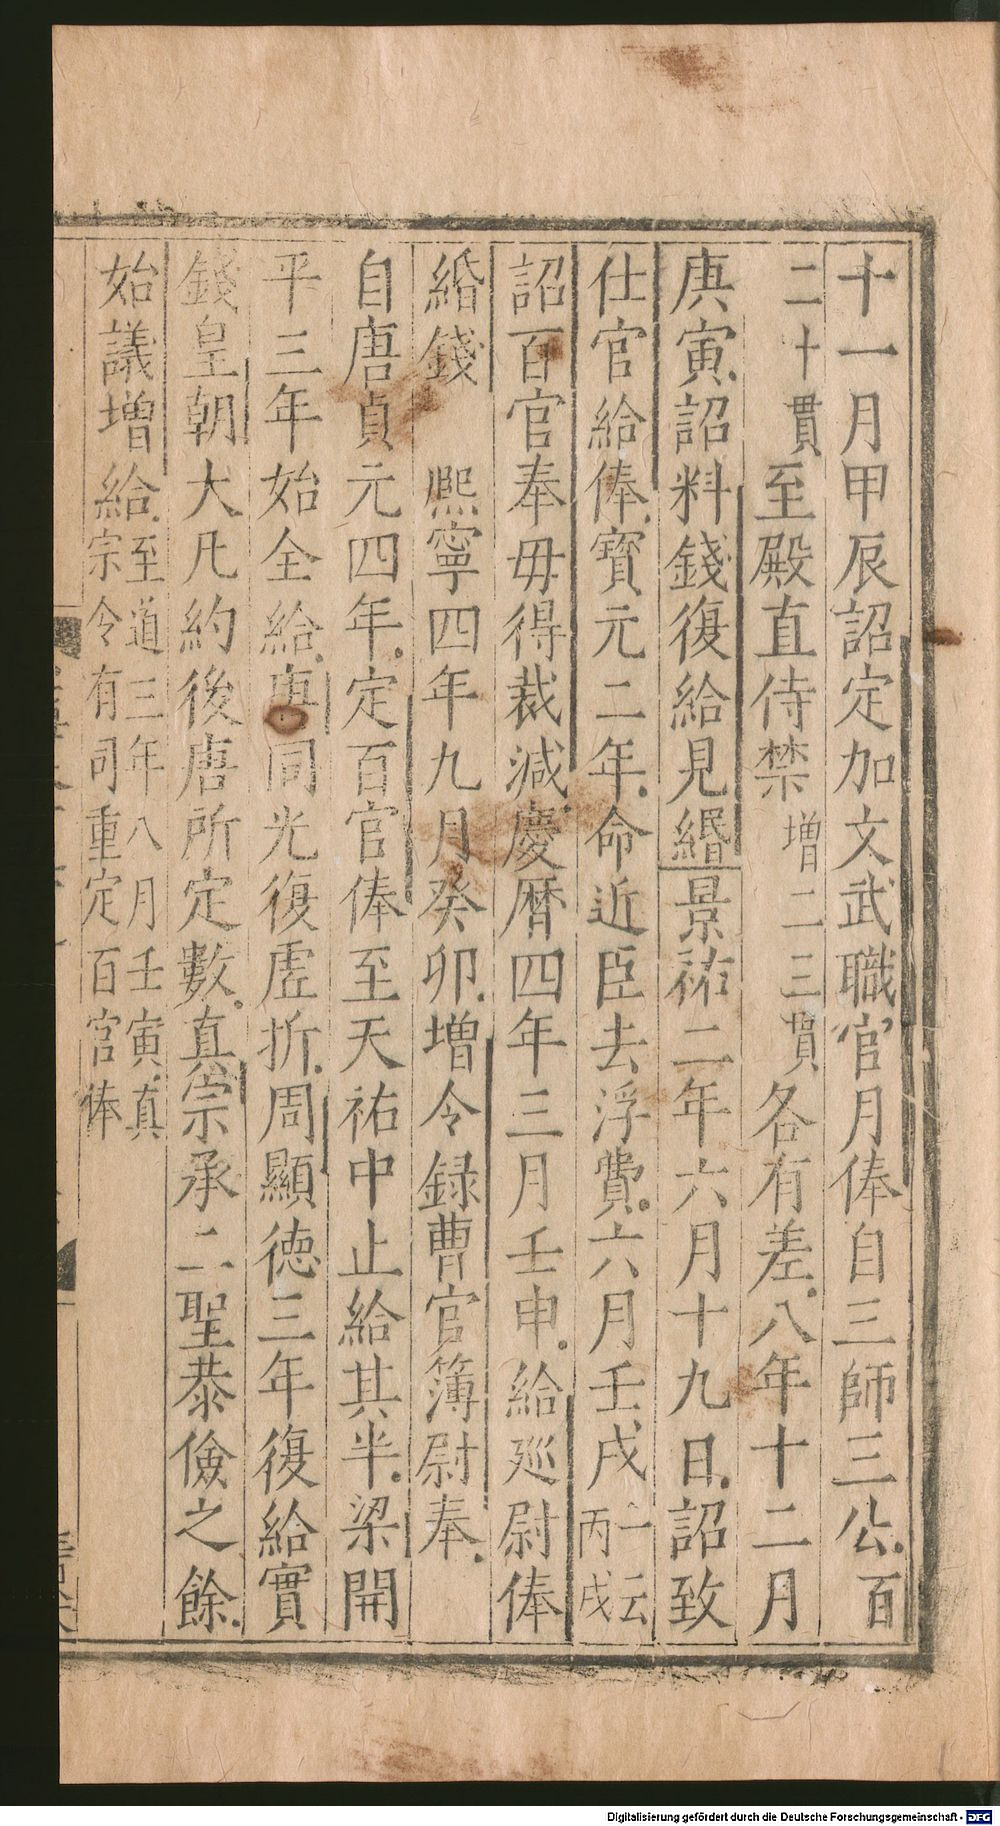 十一月甲辰詔定加文武職官月俸自三師三公百
二十貫至殿直侍禁增二三貫各有差八年十二月
庚寅詔料錢復給見緡景祐二年六月十九日詔致
仕官給俸寶元二年命近臣去浮費六月壬戌一云丙戌
詔百官奉毋得裁減慶曆四年三月壬申給廵尉俸
緡錢 熙寧四年九月癸卯增令録曹官簿尉奉
自唐貞元四年定百官俸至天祐中止給其半梁開
平三年始全給唐同光復虛折周顯德三年復給實
錢皇朝大凡約後唐所定數真宗承二聖恭儉之餘
始議增給至道三年八月壬寅真宗令有司重定百官俸
Digitalisierung gefördert durch die Deutsche Forschungsgemeinschaft - DFG